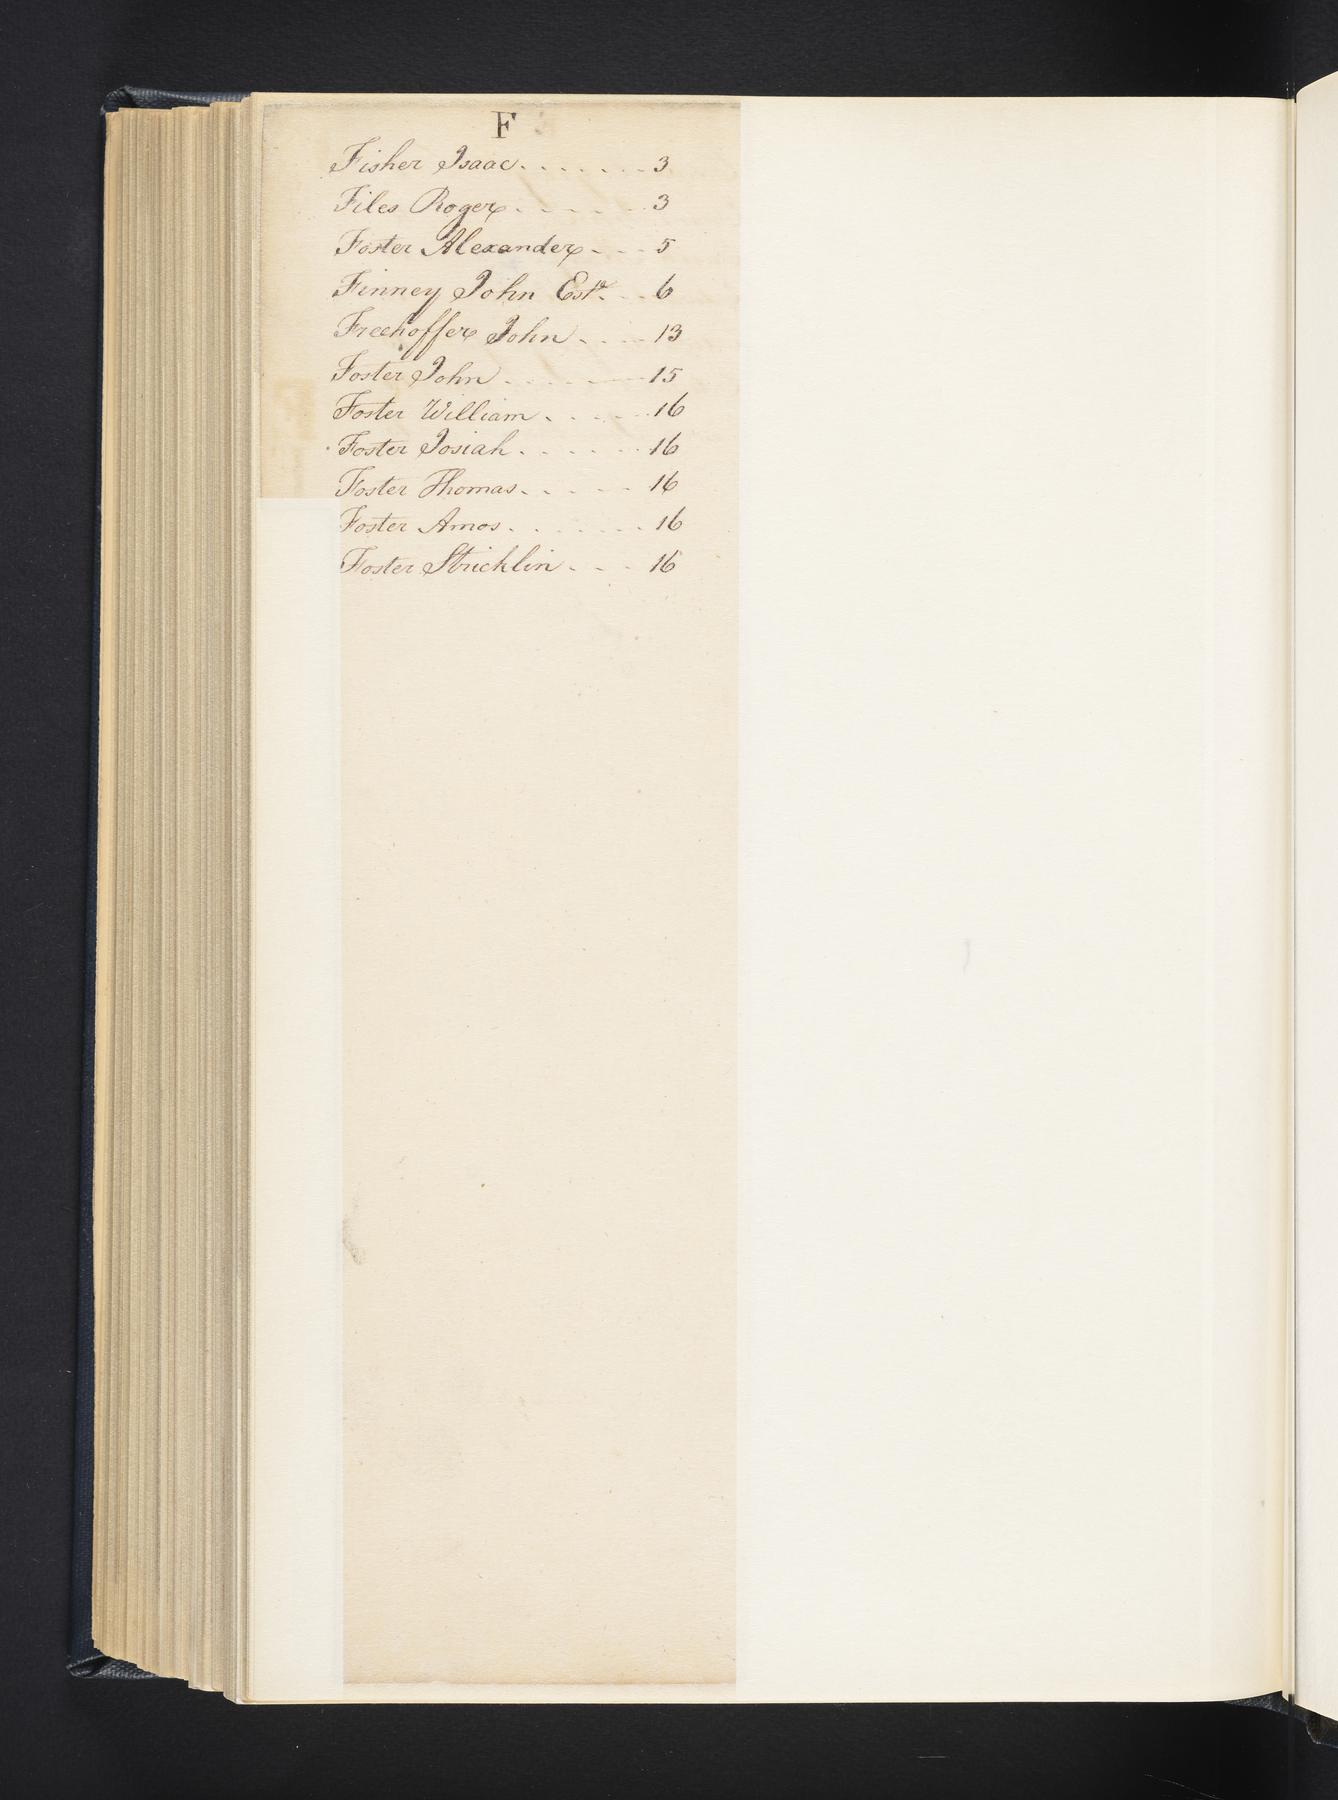 F
Fisher Isaac . . . . . . . 3
Files Roger . . . . . . 3
Foster Alexander . . . 5
Finney John Estе. . . 6
Freehoffer John . . . . 13
Foster John . . . . . . 15
Foster William . . . . . 16
Foster Josiah . . . . . . 16
Foster Thomas . . . . . 16
Foster Amos . . . . . . 16
Foster Stricklin . . . 16